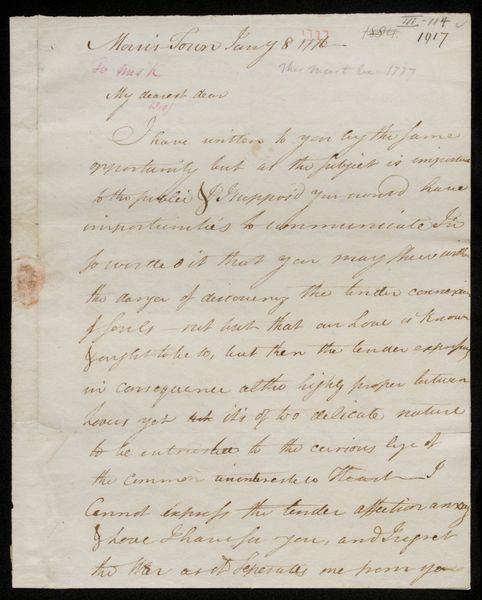 III-114
1777 1884. 1917
Morris Town Jany 8 1776
to Mrs K this must be 1777
My dearest dear
I have written to you by the same
opportunity but as the subject is
to the public & I suppos'd you would have
importunities to communicate I
it that you may shew
the danger of discovering the tender
of souls - not but that our love is known
& ought to be so, but then the tender
in consequence altho highly proper between
yet it's of too delicate nature
to be entrusted to the curious Eye of
the common Heart - I
Cannot express the tender affection anxiety
& love I have for you, and I regret
the War as it Seperates me from you